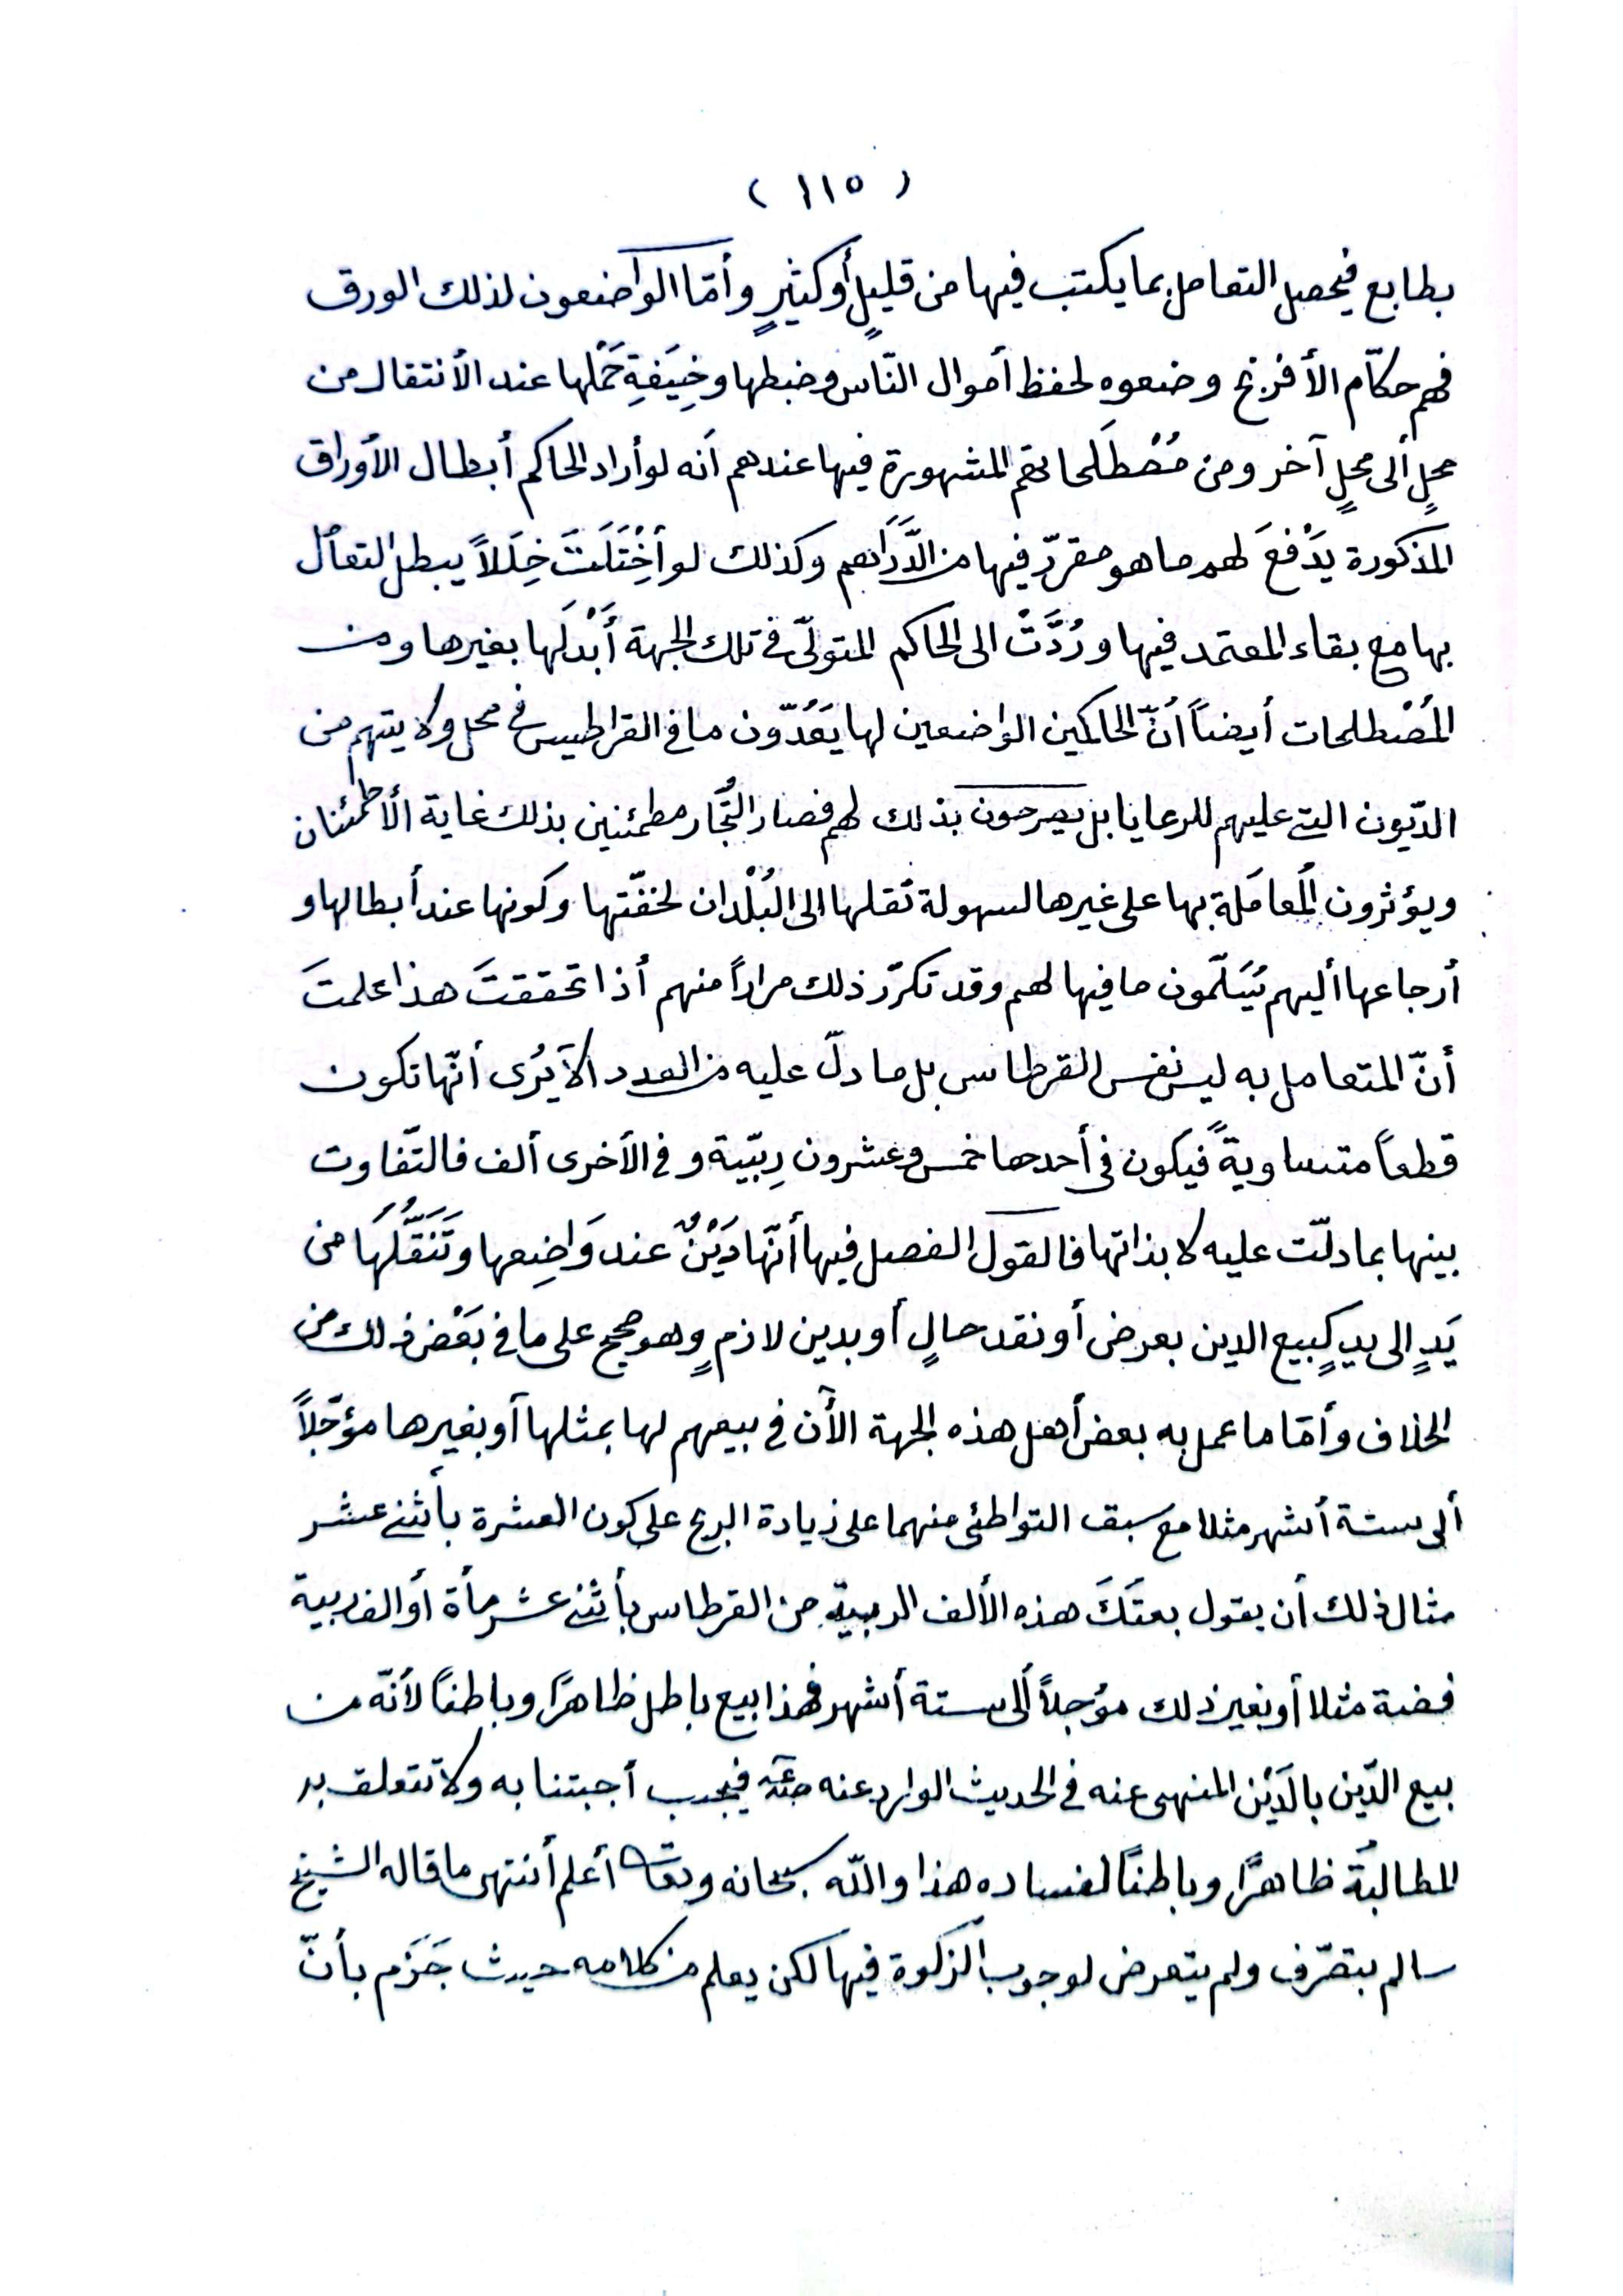 ( ١١٥ )
بطابع فيحصل التعامل بما يكتب فيها من قليلٍ أو كثيرٍ وأمّا الواضعون لذلك الورق
فهم حكّام الأفرنج وضعوه لحفظ أموال النّاس وضبطها وخِيَفةِ حَمْلها عند الأنتقال من
محلٍ ألى محلٍ آخر ومن مُصْطَلَحاتهم المشهورة فيها عندهم أنه لو أراد الحاكم أبطال الأوراق
المذكورة يدْفعَ لهم ما هو مقررّ فيها من الدَّرَاهم وكذلك لو أخْتَلَتَ خِلَلاً يبطل التعامل
بها مع بقاء المعتمد فيها ورُدَّتْ الى الحاكم المتولّى في تلك الجهة أَبْدَلَها بغيرها ومن
المُصْطلحات أيضاً أنّ الحاكمين الواضعين لها يَعُدّون ما في القراطيس في محل ولا يتهم من
الدّيون التى عليهم للرعايا بل يصرحون بذلك لهم فصار التُّجّار مطمئنين بذلك غاية الأطمئنان
ويؤثرون المُعامَلة بها على غيرها لسهولة نَقلها الى البُلْدان لخفّتها وكونها عند أبطالها و
أرجاعها أليهم يُسَلّمون ما فيها لهم وقد تكرّر ذلك مراراً منهم أذا تحققتَ هذا علمتَ
أنّ المتعامل به ليس نفس القرطاس بل ما دلّ عليه من العدد ألآ يُرى أنّها تكون
قطعاً متساويةً فيكون في أحدها خمس وعشرون رِبّية و في الأخرى ألف فالتّفاوت
بينها بما دلّت عليه لا بذاتها فالقول الفصل فيها أنّها دَيْنٌ عند وَاضِعها وتَنَقُّلُهَا من
يَدٍ الى يدٍ كبيع الدين بعرض أو نقد حالٍ أو بدين لازمٍ وهو صحيح على ما في بَعْض ذلك من
الخلاف وأمّا ما عمل به بعض أهل هذه الجهة الأن في بيعهم لها بمثلها أو بغيرها مؤجّلاً
ألى ستة أشهر مثلا مع سبق التواطئ منهما على زيادة الربح على كون العشرة بأثنى عشر
مثال ذلك أن يقول بعتَكَ هذه الألف الربية من القرطاس بأثنى عشر مأة أو ألف ربية
فضة مثلا أو بغير ذلك مؤجلاً ألى ستة أشهر فهذا بيع باطل ظاهرًا وباطنًا لأنّه من
بيع الدّين بالدَيْن المنهى عنه في الحديث الوارد عنه فيجب أجبتنابه ولا تتعلق به
المطالبَةُ ظاهرًا وباطنًا لفساده هذا واللّه سبحانه وتعالى أعلم أنتهى ما قاله الشيخ
سالم بتصّرف ولم يتعرض لوجوب الزكوة فيها لكن يعلم من كلامه حيث جَزَم بأنّ